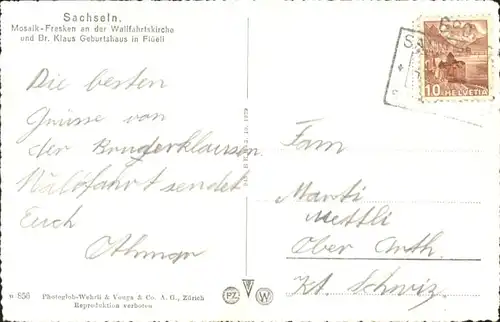 Sachseln.
Mosaik-Fresken an der Wallfahrtskirche
und Br. Klaus Geburtshaus in Flüeli
10 HELVETIA
Die besten
Grüsse von
der Bruderklausen
Wallfahrt sendet
Euch
Othmar
Fam
Marti
Mettli
Ober Arth.
Kt. Schwiz.
856 Photoglob-Wehrli & Vouga & Co. A. G., Zürich
Reproduktion verboten
PZ W